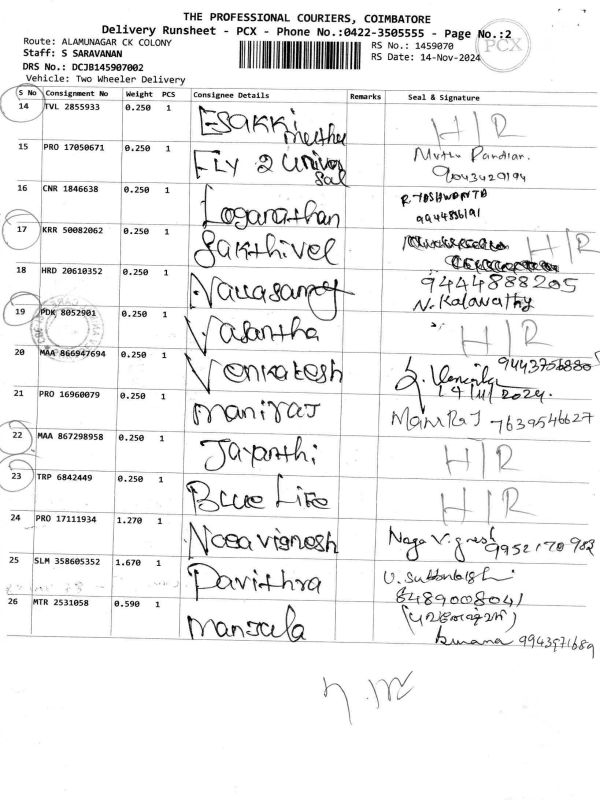 THE PROFESSIONAL COURIERS, COIMBATORE
Delivery Runsheet - PCX - Phone No.:0422-3505555 - Page No.:2
Route: ALAMUNAGAR CK COLONY
RS No.: 1459070
PCX
Staff: S SARAVANAN
RS Date: 14-Nov-2024
DRS No.: DCJB145907002
Vehicle: Two Wheeler Delivery
S No Consignment No Weight PCS Consignee Details Remarks Seal & Signature
14 TVL 2855933 0.250 1 Esakki muthu H/R
15 PRO 17050671 0.250 1 Fly 2 Univer sal Muthu Pandian.
9043429194
16 CNR 1846638 0.250 1 Loganathan
17 KRR 50082062 0.250 1 Sakthivel H/R
18 HRD 20610352 0.250 1 Nallasamy 9444888205
N. Kalavathy
19 PDK 8052901 0.250 1 Vasantha H/R
20 MAA 866947694 0.250 1 Venkatesh 9443756880
14/11/2024
21 PRO 16960079 0.250 1 Maniraj ManiRaJ 7639546627
22 MAA 867298958 0.250 1 Jayanthi H/R
23 TRP 6842449 0.250 1 Blue Life H/R
24 PRO 17111934 1.270 1 Nagavignesh Naga Vignesh
9952170903
25 SLM 358605352 1.670 1 Pavithra
8489008041
26 MTR 2531058 0.590 1 Manjula
9943971689